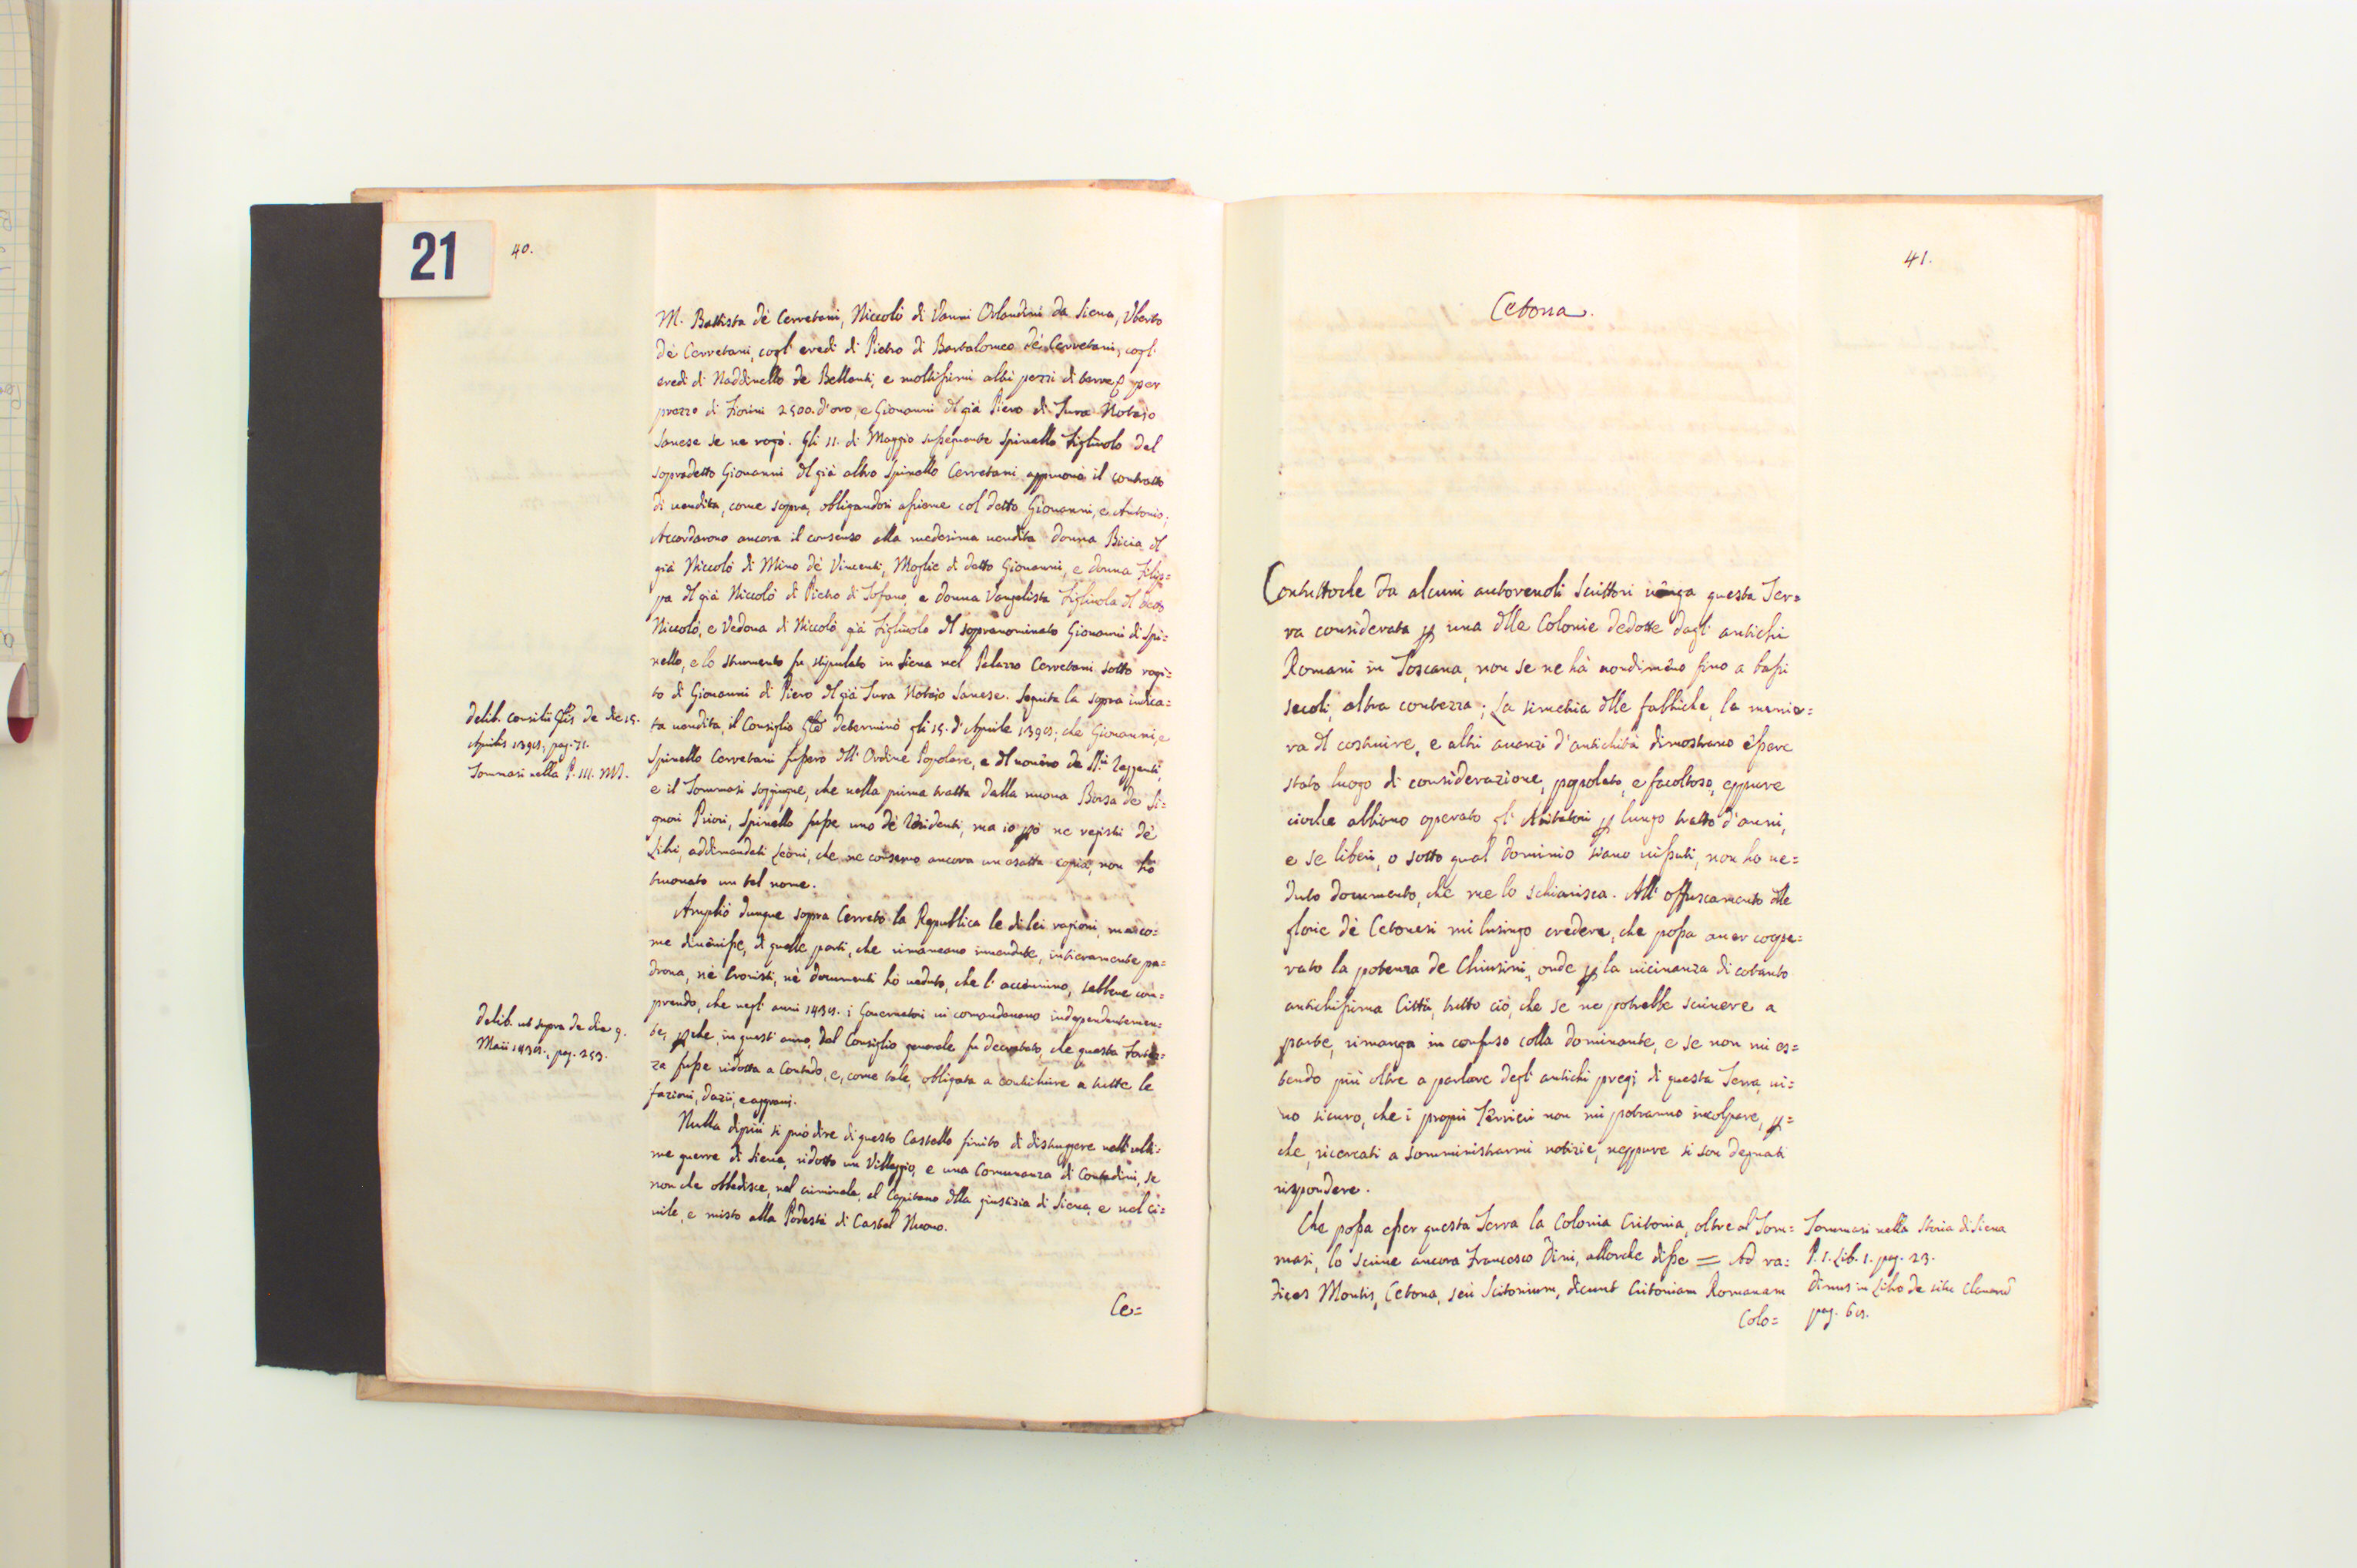 21
40.
M. Battista de' Cerretani, Niccolò di Vanni Orlandini da Siena, Uberto
de' Cerretani, cogl' eredi di Pietro di Bartolomeo de' Cerretani, cogl'
eredi di Naddinello de Bellanti, e moltissimi altri pezzi di terre per
prezzo di Fiorini 2500. d'oro, e Giovanni del già Piero di Tura Notajo
Sanese se ne rogò. Gli 11. di Maggio susseguente Spinello Figliuolo del
sopradetto Giovanni del già altro Spinello Cerretani approvò il contratto
di vendita, come sopra, obligandosi assieme col detto Giovanni, e Antonio;
Accordarono ancora il consenso alla medesima vendita donna Bicia del
già Niccolò di Mino de' Vincenti, Moglie di detto Giovanni, e donna Filip=
pa del già Niccolò di Pietro di Tofano, e donna Vangelista Figliuola del detto
Niccolò, e Vedova di Niccolò già Figliuolo del sopranominato Giovanni di Spi=
nello, e lo strumento fu stipulato in Siena nel Palazzo Cerretani sotto rogi=
to di Giovanni di Piero del già Tura Notajo Sanese. Seguita la sopra indica=
ta vendita, il Consiglio Gnle determinò gli 15. d'Aprile 1395; che Giovanni, e
Spinello Cerretani fussero dell' Ordine Popolare, e del novero de Reggenti,
e il Tommasi soggiugne, che nella prima tratta dalla nuova Borsa de Si=
gnori Priori, Spinello fusse uno de' Residenti, ma io però ne registri de'
Libri, addimandati Leoni, che ne conservo ancora un esatta copia, non ho
truovato un tal nome.
Ampliò dunque sopra Cerreto la Republica le di lei ragioni, ma co=
me divenisse, di quelle parti, che rimaneano invendute, intieramente pa=
drona, nè Cronisti, nè documenti hò veduto, che l' accennino, sebbene com=
prendo, che negl' anni 1435. i Governatori vi comandavano independentemen=
te, perche, in quest' anno, dal Consiglio generale fu decretato, che questa Fortez=
za fusse ridotta a Contado, e, come tale, obligata a contribuire a tutte le
fazioni, dazii, e aggravi.
Nulla dipiù si può dire di questo Castello finito di distruggere nell' ulti=
me guerre di Siena, ridotto un Villaggio, e una Comunanza di Contadini, se
non che obbedisce, nel criminale, al Capitano della giustizia di Siena, e nel ci=
vile, e misto alla Podestà di Castel Nuovo.
Ce=
delib. Consilii Gnlis de die 15.
Aprilis 1395, pag. 71.
Tommasi nella P. III. MS.
delib. ut supra de die 9.
Maii 1435., pag. 253.
41.
Cetona.
Contuttoche da alcuni autorevoli Scrittori venga questa Ter=
ra considerata per una delle Colonie dedotte dagl' antichi
Romani in Toscana, non se ne hà nondimeno fino a bassi
secoli, altra contezza; La simetria delle fabbriche, la manie=
ra del costruire, e altri avanzi d'antichità dimostrano essere
stato luogo di considerazione, popolato, e facoltoso, eppure
cioche abbiano operato gl' Abitatori per lungo tratto d'anni,
e se liberi, o sotto qual dominio siano vissuti, non ho ve=
duto documento, che me lo schiarisca. All' offuscamento delle
glorie de' Cetonesi mi lusingo credere, che possa aver coope=
rato la potenza de Chiusini, onde per la vicinanza di cotanto
antichissima Città, tutto ciò, che se ne potrebbe scrivere a
parte, rimanga in confuso colla dominante, e se non mi es=
tendo più oltre a parlare degl' antichi pregj di questa Terra, vi=
vo sicuro, che i proprii Terrieri non mi potranno incolpare, per=
che, ricercati a somministrarmi notizie, neppure si son degnati
rispondere.
Che possa esser questa Terra la Colonia Critonia, oltre al Tom=
masi, lo scrive ancora Francesco Dini, allorche disse = Ad ra=
dices Montis, Cetona, seù Scitonium, dicunt Critoniam Romanam
Colo=
Tommasi nella Storia di Siena
P. I. Lib. I. pag. 23.
Dinus in Libro de situ Clanarum
pag. 65.